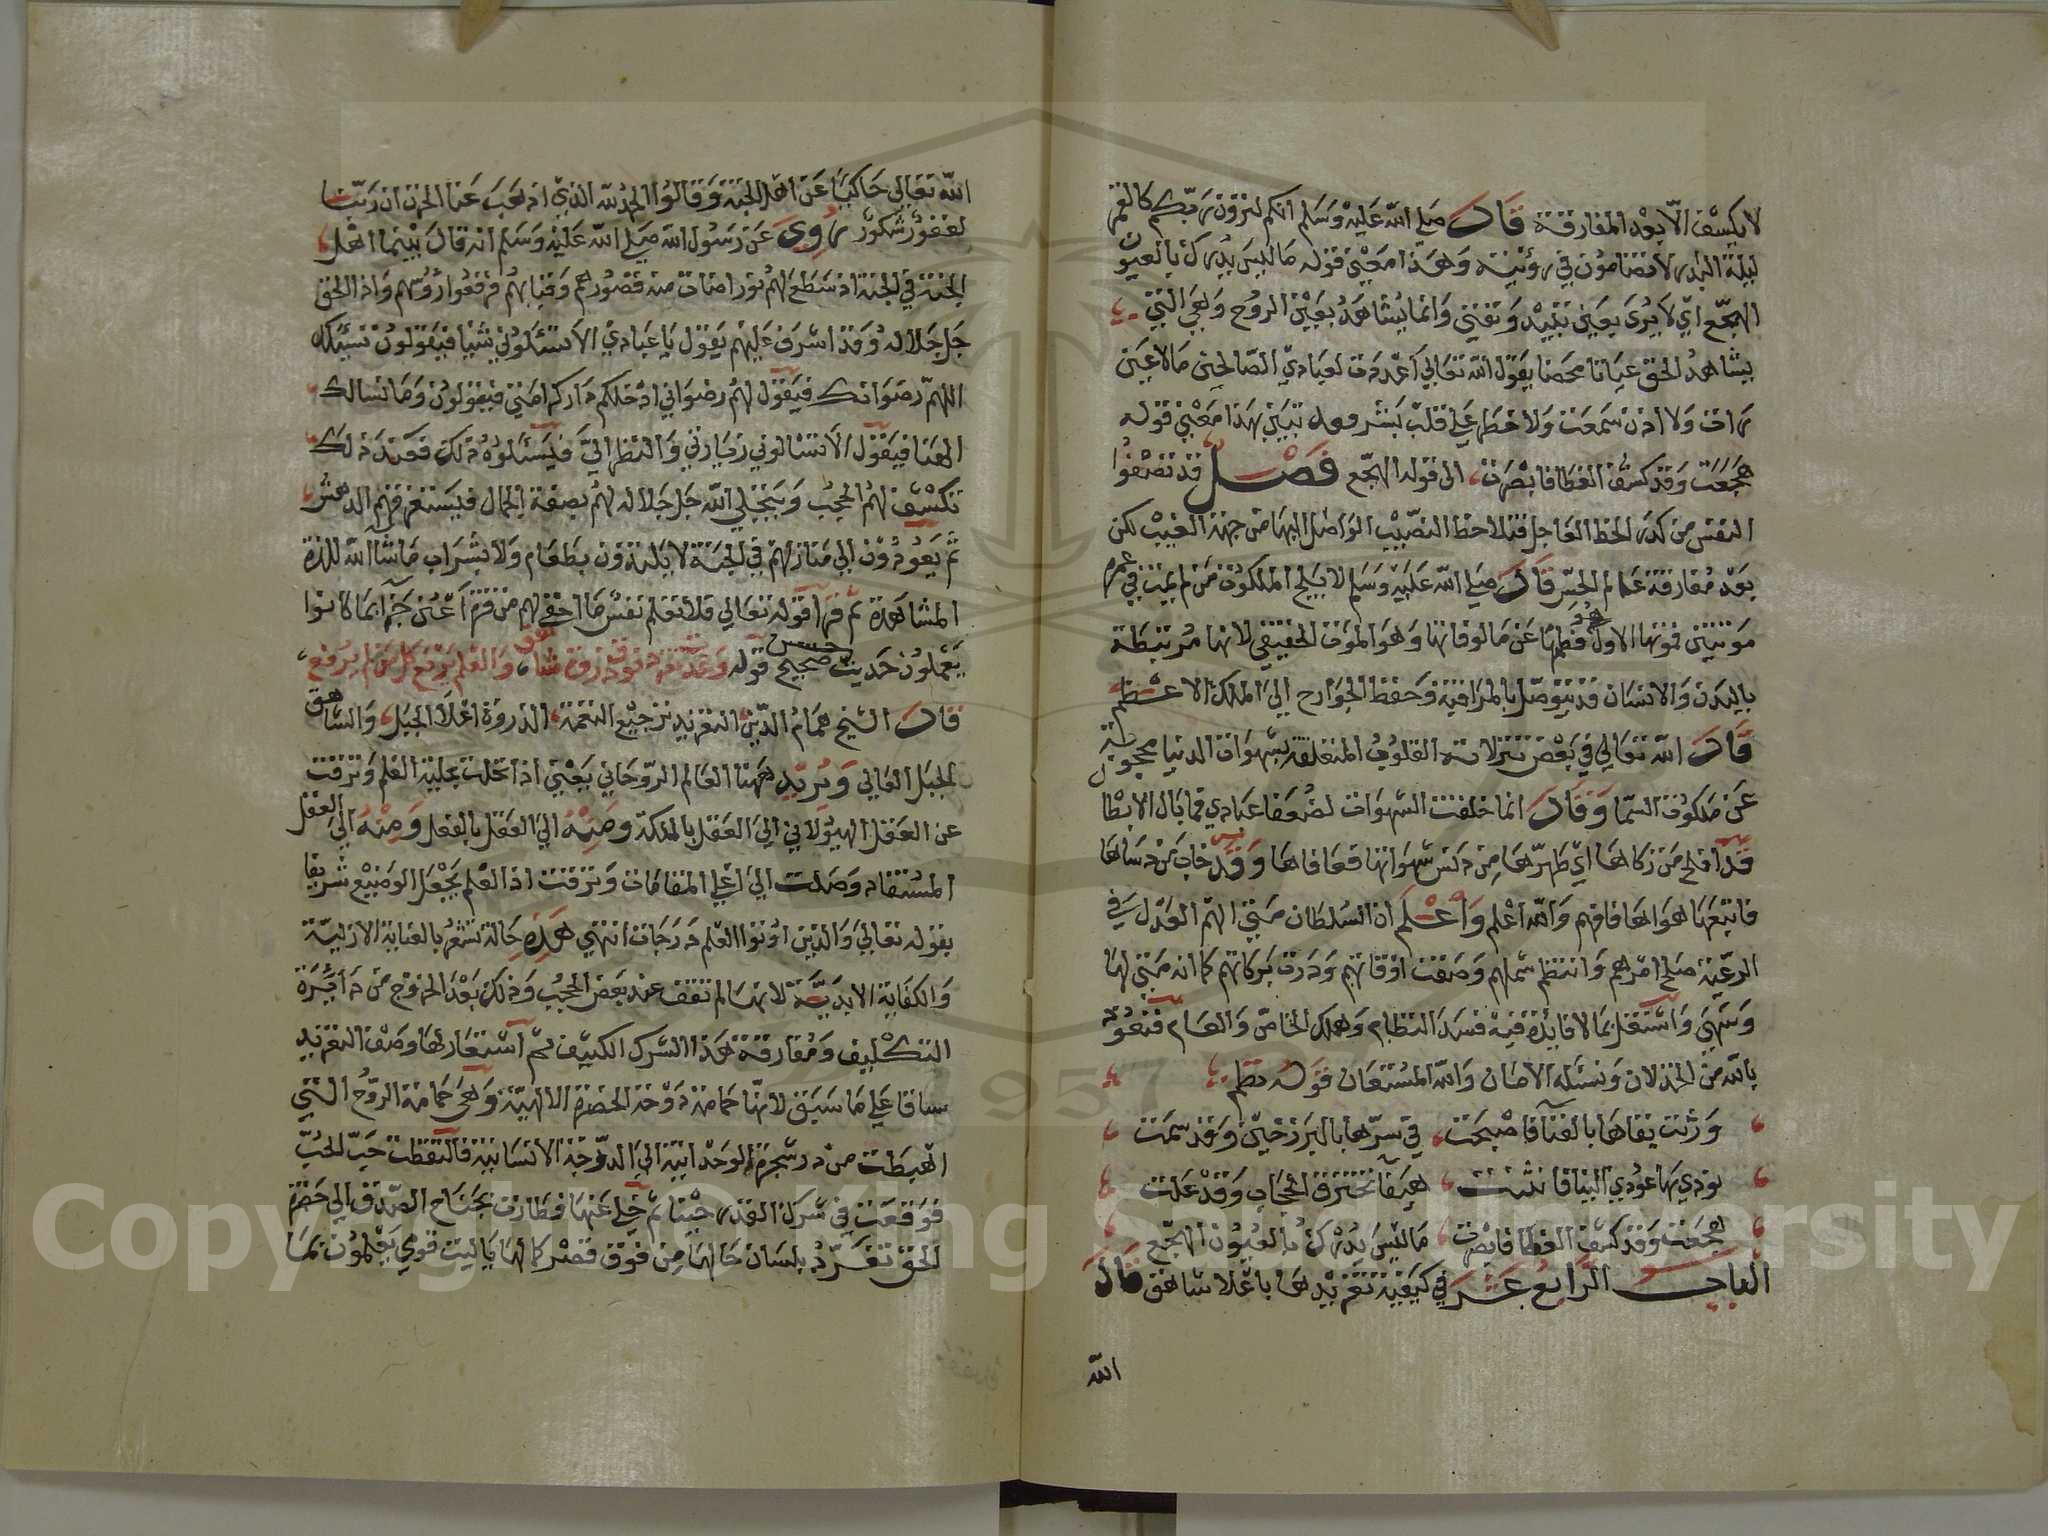 لا يكشف الا بعد المفارقة قال صلى الله عليه وسلم انكم لترون ربكم كالقمر
ليلة البدر لا تضامون في رؤيته وهذا معنى قوله ما ليس يدرك بالعيون
الهجع اي لا يرى بعين تبيد وتفنى وانما يشاهد بعين الروح وهي التي
يشاهد الحق عيانا محضا يقول الله تعالى اعددت لعبادي الصالحين ما لا عين
رات ولا اذن سمعت ولا خطر على قلب بشر تبين بهذا معنى قوله
هجعت وقد كشف الغطا فابصرت الى قوله الهجع فصل قد تصفوا
النفس من كدر الحظ العاجل فتلاحظ النصيب الواصل اليها من جهة الغيب لكن
بعد مفارقة عالم الحس قال صلى الله عليه وسلم لا يلج الملكوت من لم يمت في عمره
موتتين فموتها الاول هو فطمها عن مالوفاتها وهو الموت الحقيقي لانها مرتبطة
بالبدن والانسان قد يتوصل بالمراقبة وحفظ الجوارح الى الملك الاعظم
قال الله تعالى في بعض تنزلاته القلوب المتعلقة بشهوات الدنيا محجوبة
عن ملكوت السما وقال انما خلقت الشهوات لضعفا عبادي فما بال الابطا
قد افلح من زكاها اي طهرها من دنس شهواتها فعافاها وقد خاب من دساها
فاتبعها هواها فافهم والله اعلم واعلم ان السلطان متى الهم العدل في
الرعية صلح امرهم وانتظم شملهم وصفت اوقاتهم ودرت بركاتهم كما انه متى لها
وسهى واشتغل بما لا فايدة فيه فسد النظام وهلك الخاص والعام فنعوذ
بالله من الخذلان ونسئله الامان والله المستعان قوله نظم
ورثت بقاها بالفنا فاصبحت في سرها بالبرزخين وقد سمت
نودي بها عودي الينا فانثنت هيفا تخترق الحجاب وقد علت
هجعت وقد كشف الغطا فابصرت ما ليس يدرك بالعيون الهجع
الباب الرابع عشر في كيفية تغريدها باعلا شاهق قال
الله
الله تعالى حاكيا عن اهل الجنة وقالوا الحمد لله الذي اذهب عنا الحزن ان ربنا
لغفور شكور روي عن رسول الله صلى الله عليه وسلم انه قال بينما اهل
الجنة في الجنة اذ سطع لهم نور اضات منه قصورهم وقبابهم فرفعوا رؤسهم واذ الحق
جل جلاله وقد اشرف عليهم يقول يا عبادي الا تسئلوني شيا فيقولون نسئلك
اللهم رضوانك فيقول لهم رضواني ادخلكم دار كرامتي فيقولون وما نسالك
الهنا فيقول الا تسالوني زيارتي والنظر الي فيسئلوه ذلك فعند ذلك
تكشف لهم الحجب ويتجلى الله جل جلاله لهم بصفة الجمال فيستغرقهم الدهش
ثم يعودون الى منازلهم في الجنة لا يلتذون بطعام ولا بشراب ما شا الله للذة
المشاهدة ثم قرا قوله تعالى فلا تعلم نفس ما اخفي لهم من قرة اعين جزا بما كانوا
يعملون حديث حسن صحيح قوله وغدت تغرد فوق ذروة شاهق والعلم يرفع كل من لم يرفع
قال الشيخ همام الدين التغريد ترجيع النغمة الذروة اعلا الجبل والشاهق
الجبل العالي ويريد ههنا العالم الروحاني يعني اذا تحلت بحلية العلم وترقت
عن العقل الهيولاني الى العقل بالملكة ومنه الى العقل بالفعل ومنه الى العقل
المستفاد وصلت الى اعلى المقامات وترقت اذ العلم يجعل الوضيع شريفا
بقوله تعالى والذين اوتوا العلم درجات انتهى هذه حالة تشعر بالعناية الازلية
والكفاية الابدية لانها لم تقف عند بعض الحجب وذلك بعد الخروج من دايرة
التكليف ومفارقة هذا الشرك الكثيف ثم استعار لها وصف التغريد
ساقا على ما سبق لانها حمامة دوحة الحضرة الالهية وهي حمامة الروح التي
اهبطت من شجرة الوحدانية الى الدوحة الانسانية فالتقطت حب الحب
فوقعت في شرك القدر حينا ثم خلي عنها فطارت بجناح الصدق الى حضرة
الحق تغرد بلسان حالها من فوق قصر كمالها يا ليت قومي يعلمون بما